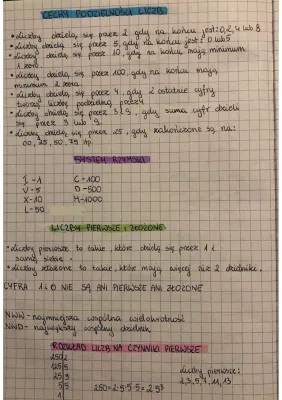 CECHY PODZIELNOŚCI LICZB
• Liczby dzielą się przez 2 gdy na końcu jest: 0,2,4 lub 8
• Liczby dzielą się przez 5, gdy na końcu jest: 0 lub 5
• Liczby dzielą się przez 10, gdy na końcu mają minimum
1 zero.
• Liczby dzielą się przez 100, gdy na końcu mają
minimum 2 zera.
• Liczby dzielą się przez 4, gdy 2 ostatnie cyfry
tworzą liczbę podzielną przez 4
• Liczby dzielą się przez 3 i 9, gdy suma cyfr dzieli
się przez 3 lub 9.
• Liczby dzielą się przez 25, gdy zakończone są na:
00, 25, 50, 75 np.
SYSTEM RZYMSKI
I - 1 C - 100
V - 5 D - 500
X - 10 M - 1000
L - 50
LICZBY PIERWSZE I ZŁOŻONE
• Liczby pierwsze to takie, które dzielą się przez 1 i
samą siebie.
• Liczby złożone to takie, które mają więcej niż 2 dzielniki.
CYFRA 1 i 0 NIE SĄ ANI PIERWSZE ANI ZŁOŻONE
NWW - najmniejsza wspólna wielokrotność
NWD - największy wspólny dzielnik
ROZKŁAD LICZB NA CZYNNIKI PIERWSZE
250 2
125 5
25 5
5 5
1
250 = 2·5·5·5 = 2·5³
liczby pierwsze:
2,3,5,7,11,13